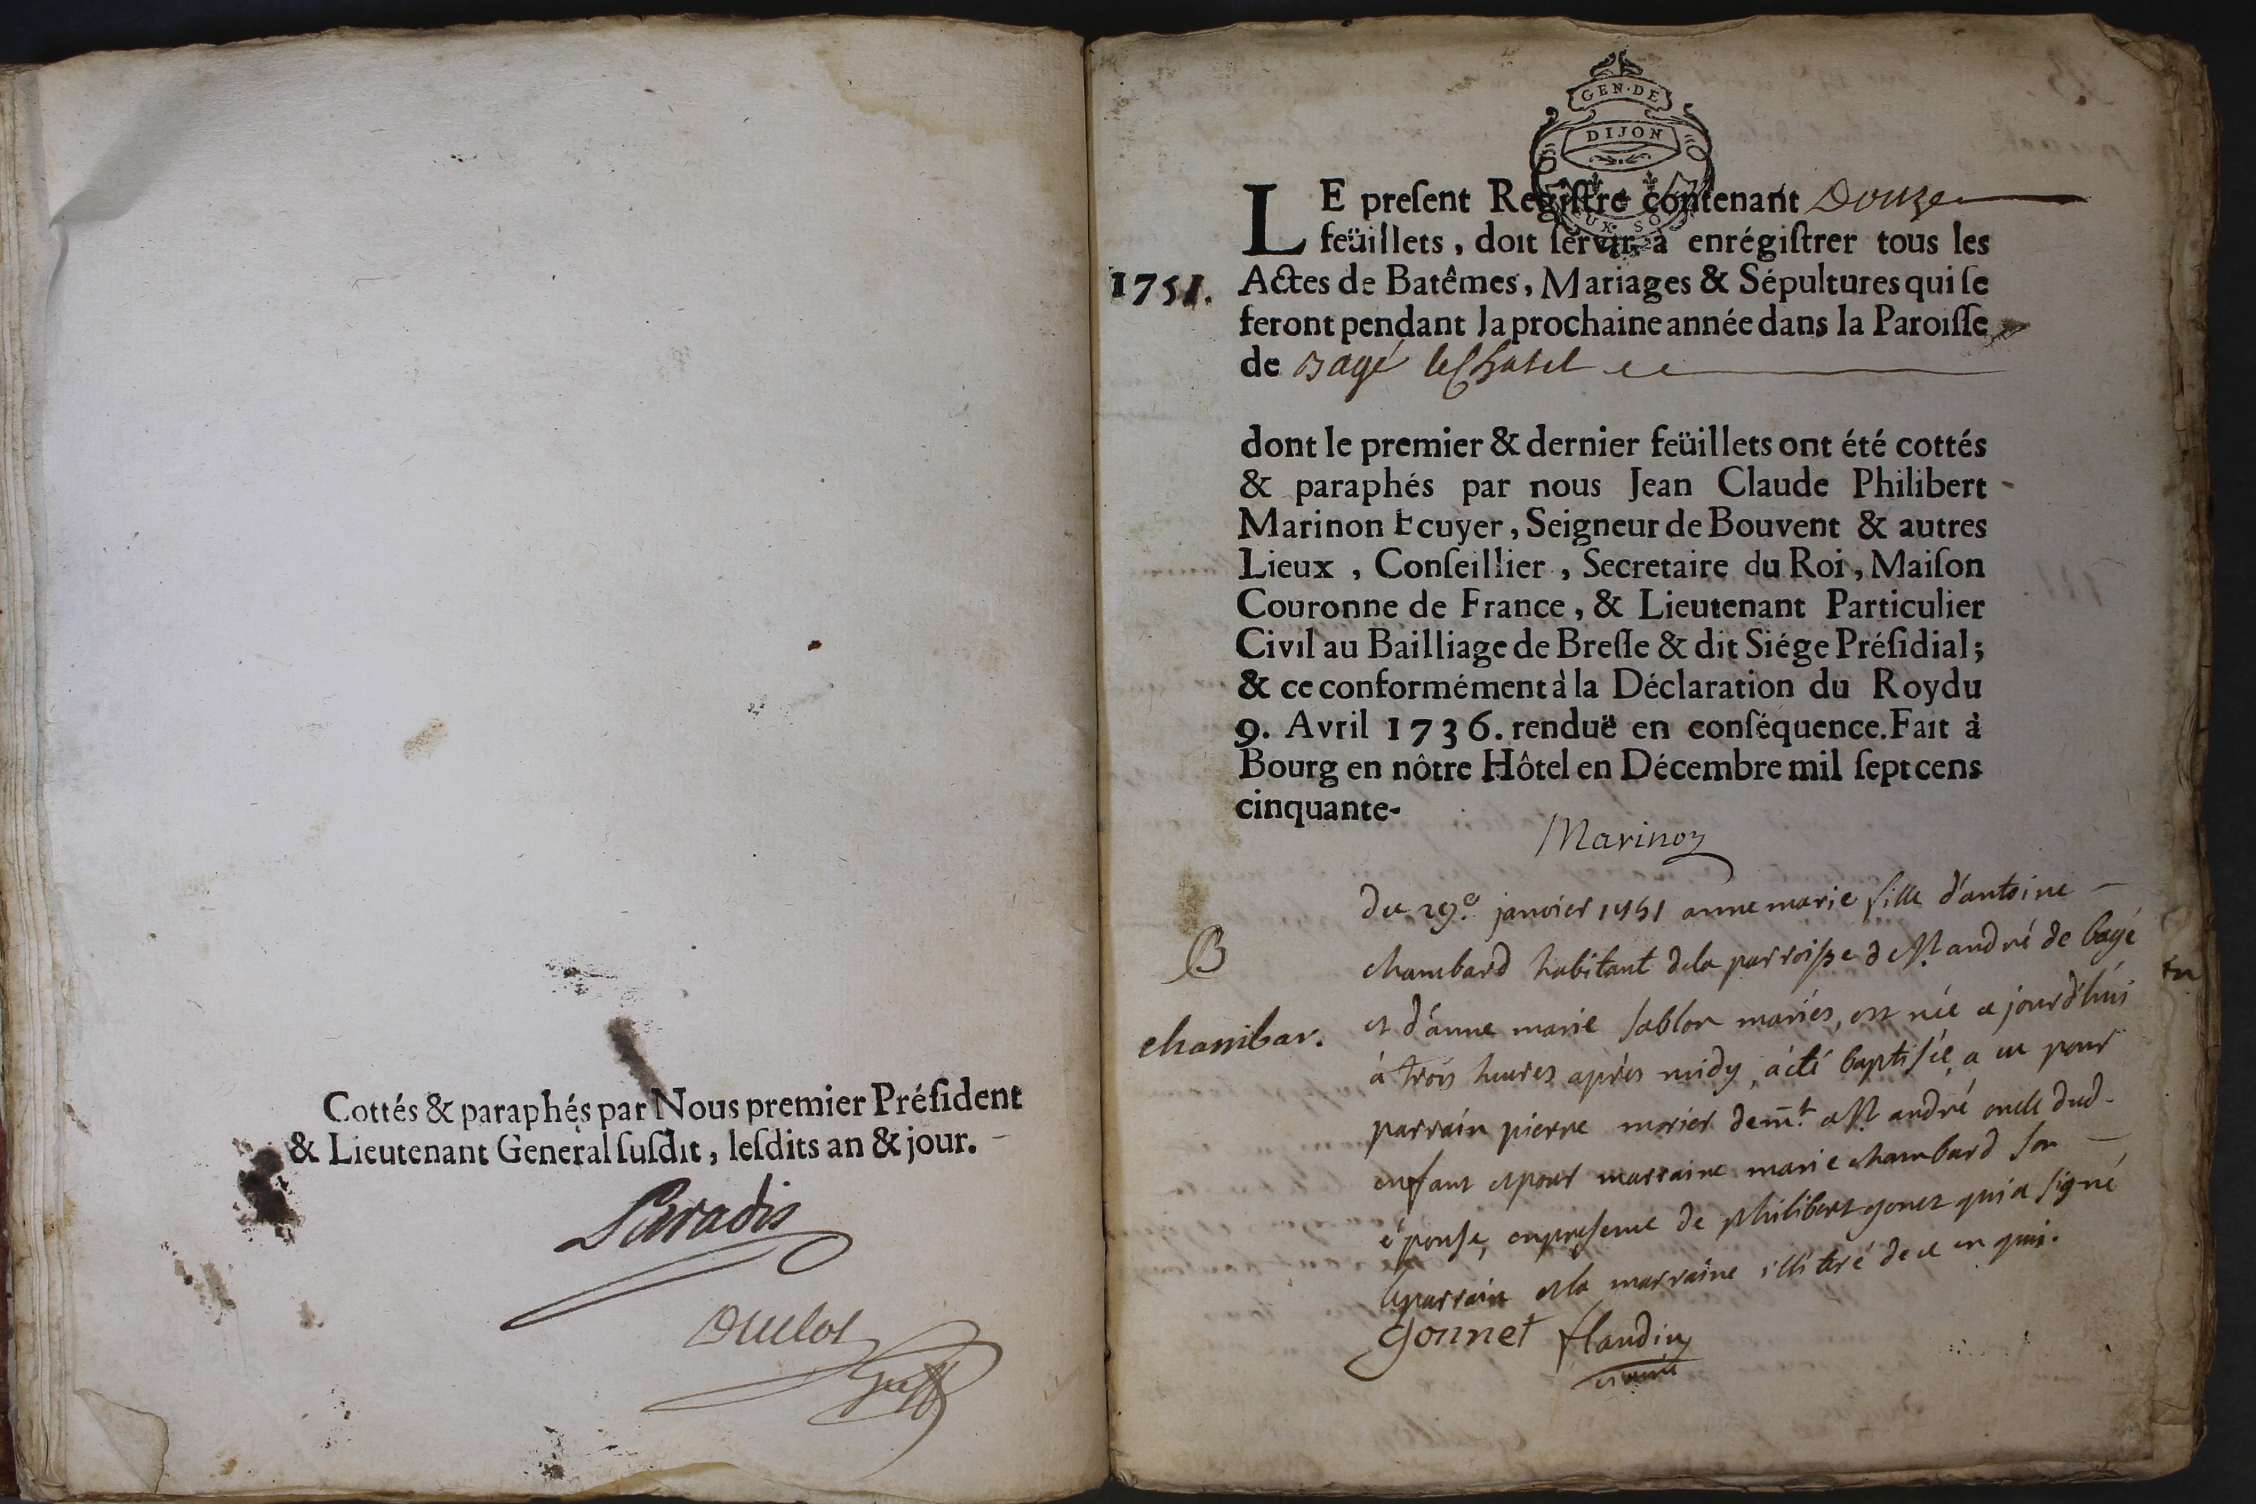 Cottés & paraphés par Nous premier Préſident
& Lieutenant General ſuſdit, leſdits an & jour.
Paradis
Duclos
Greff
GEN·DE
DIJON
LE preſent Regiſtre contenant Douze
feüillets, doit ſervir à enrégiſtrer tous les
1751.
Actes de Batêmes, Mariages & Sépultures qui ſe
feront pendant la prochaine année dans la Paroiſſe
de Bagé le Chatel
dont le premier & dernier feüillets ont été cottés
& paraphés par nous Jean Claude Philibert
Marinon Ecuyer, Seigneur de Bouvent & autres
Lieux, Conſeillier, Secretaire du Roi, Maiſon
Couronne de France, & Lieutenant Particulier
Civil au Bailliage de Breſſe & dit Siége Préſidial;
& ce conformément à la Déclaration du Roy du
9. Avril 1736. renduë en conſéquence. Fait à
Bourg en nôtre Hôtel en Décembre mil ſept cens
cinquante-
Marinon
B
chambar.
du 29e. janvier 1751 anne marie fille d'antoine
chambard habitant dela parroisse de St. andré de bagé
et d'anne marie sablon mariés, est née ce jourd'hui
à trois heures après midy, a été baptisée, a eu pour
parrain pierre morier demt. a St. andré oncle dud.
enfant et pour marraine marie chambard son
épouse, en presence de philibert gonet qui a signé
le parrain et la marraine illitéré de ce enquis.
gonnet flandin